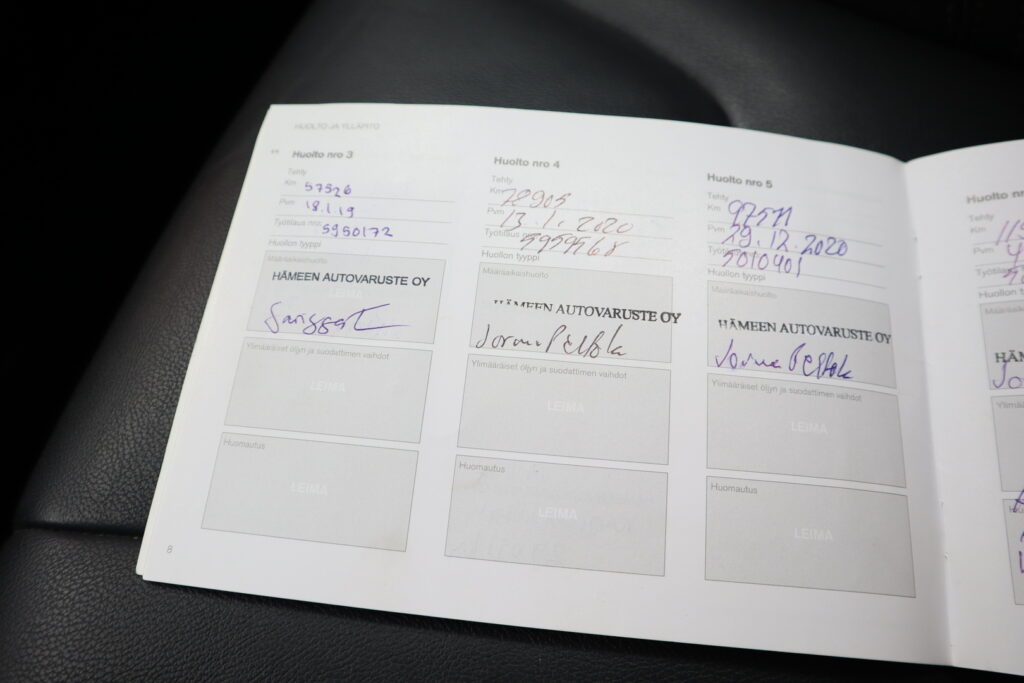 HUOLTO JA YLLÄPITO
Huolto nro 3
Tehty
Km 57526
Pvm 18.1.19
Työtilaus nro: 5950172
Huollon tyyppi
Määräaikaishuolto
HÄMEEN AUTOVARUSTE OY
LEIMA
Ylimääräiset öljyn ja suodattimen vaihdot
LEIMA
Huomautus
LEIMA
8
Huolto nro 4
Tehty
Km 78905
Pvm 13.1.2020
Työtilaus nro: 5959568
Huollon tyyppi
Määräaikaishuolto
HÄMEEN AUTOVARUSTE OY
Jorma Peltola
Ylimääräiset öljyn ja suodattimen vaihdot
LEIMA
Huomautus
LEIMA
Huolto nro 5
Tehty
Km 97511
Pvm 29.12.2020
5010401
Huollon tyyppi
Määräaikaishuolto
HÄMEEN AUTOVARUSTE OY
Jorma Peltola
Ylimääräiset öljyn ja suodattimen vaihdot
LEIMA
Huomautus
LEIMA
Huolto
Tehty
Km
Pvm
Huollon